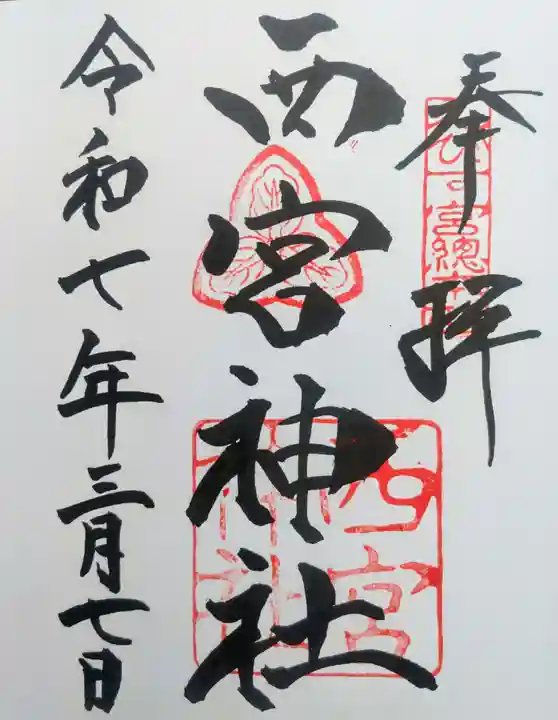 奉拝
西宮神社
令和七年三月七日
西宮
神社